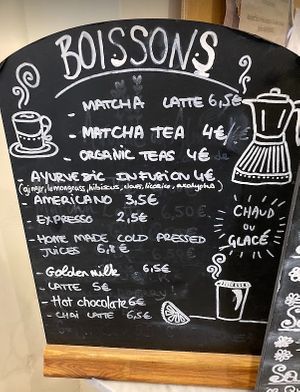 BOISSONS
- MATCHA LATTE 6,5€
- MATCHA TEA 4€
- ORGANIC TEAS 4€
- AYURVEDIC INFUSION 4€
(ginger, lemongrass, hibiscus, cloves, licorice, eucalyptus)
AMERICANO 3,5€
- EXPRESSO 2,5€
- HOME MADE COLD PRESSED
JUICES 6,8€
- Golden milk 6,5€
- LATTE 5€
- Hot chocolate 6€
- CHAI LATTE 6,5€
CHAUD
OU
GLACÉ